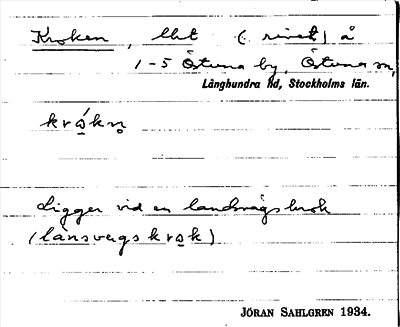 Kroken, lht (: rivet) å
1-5 Östuna by, Östuna sn,
Långhundra hd, Stockholms län.
krǻkn̥
Ligger vid en landsvägskrok
(lánsvegskråk)
JÖRAN SAHLGREN 1934.